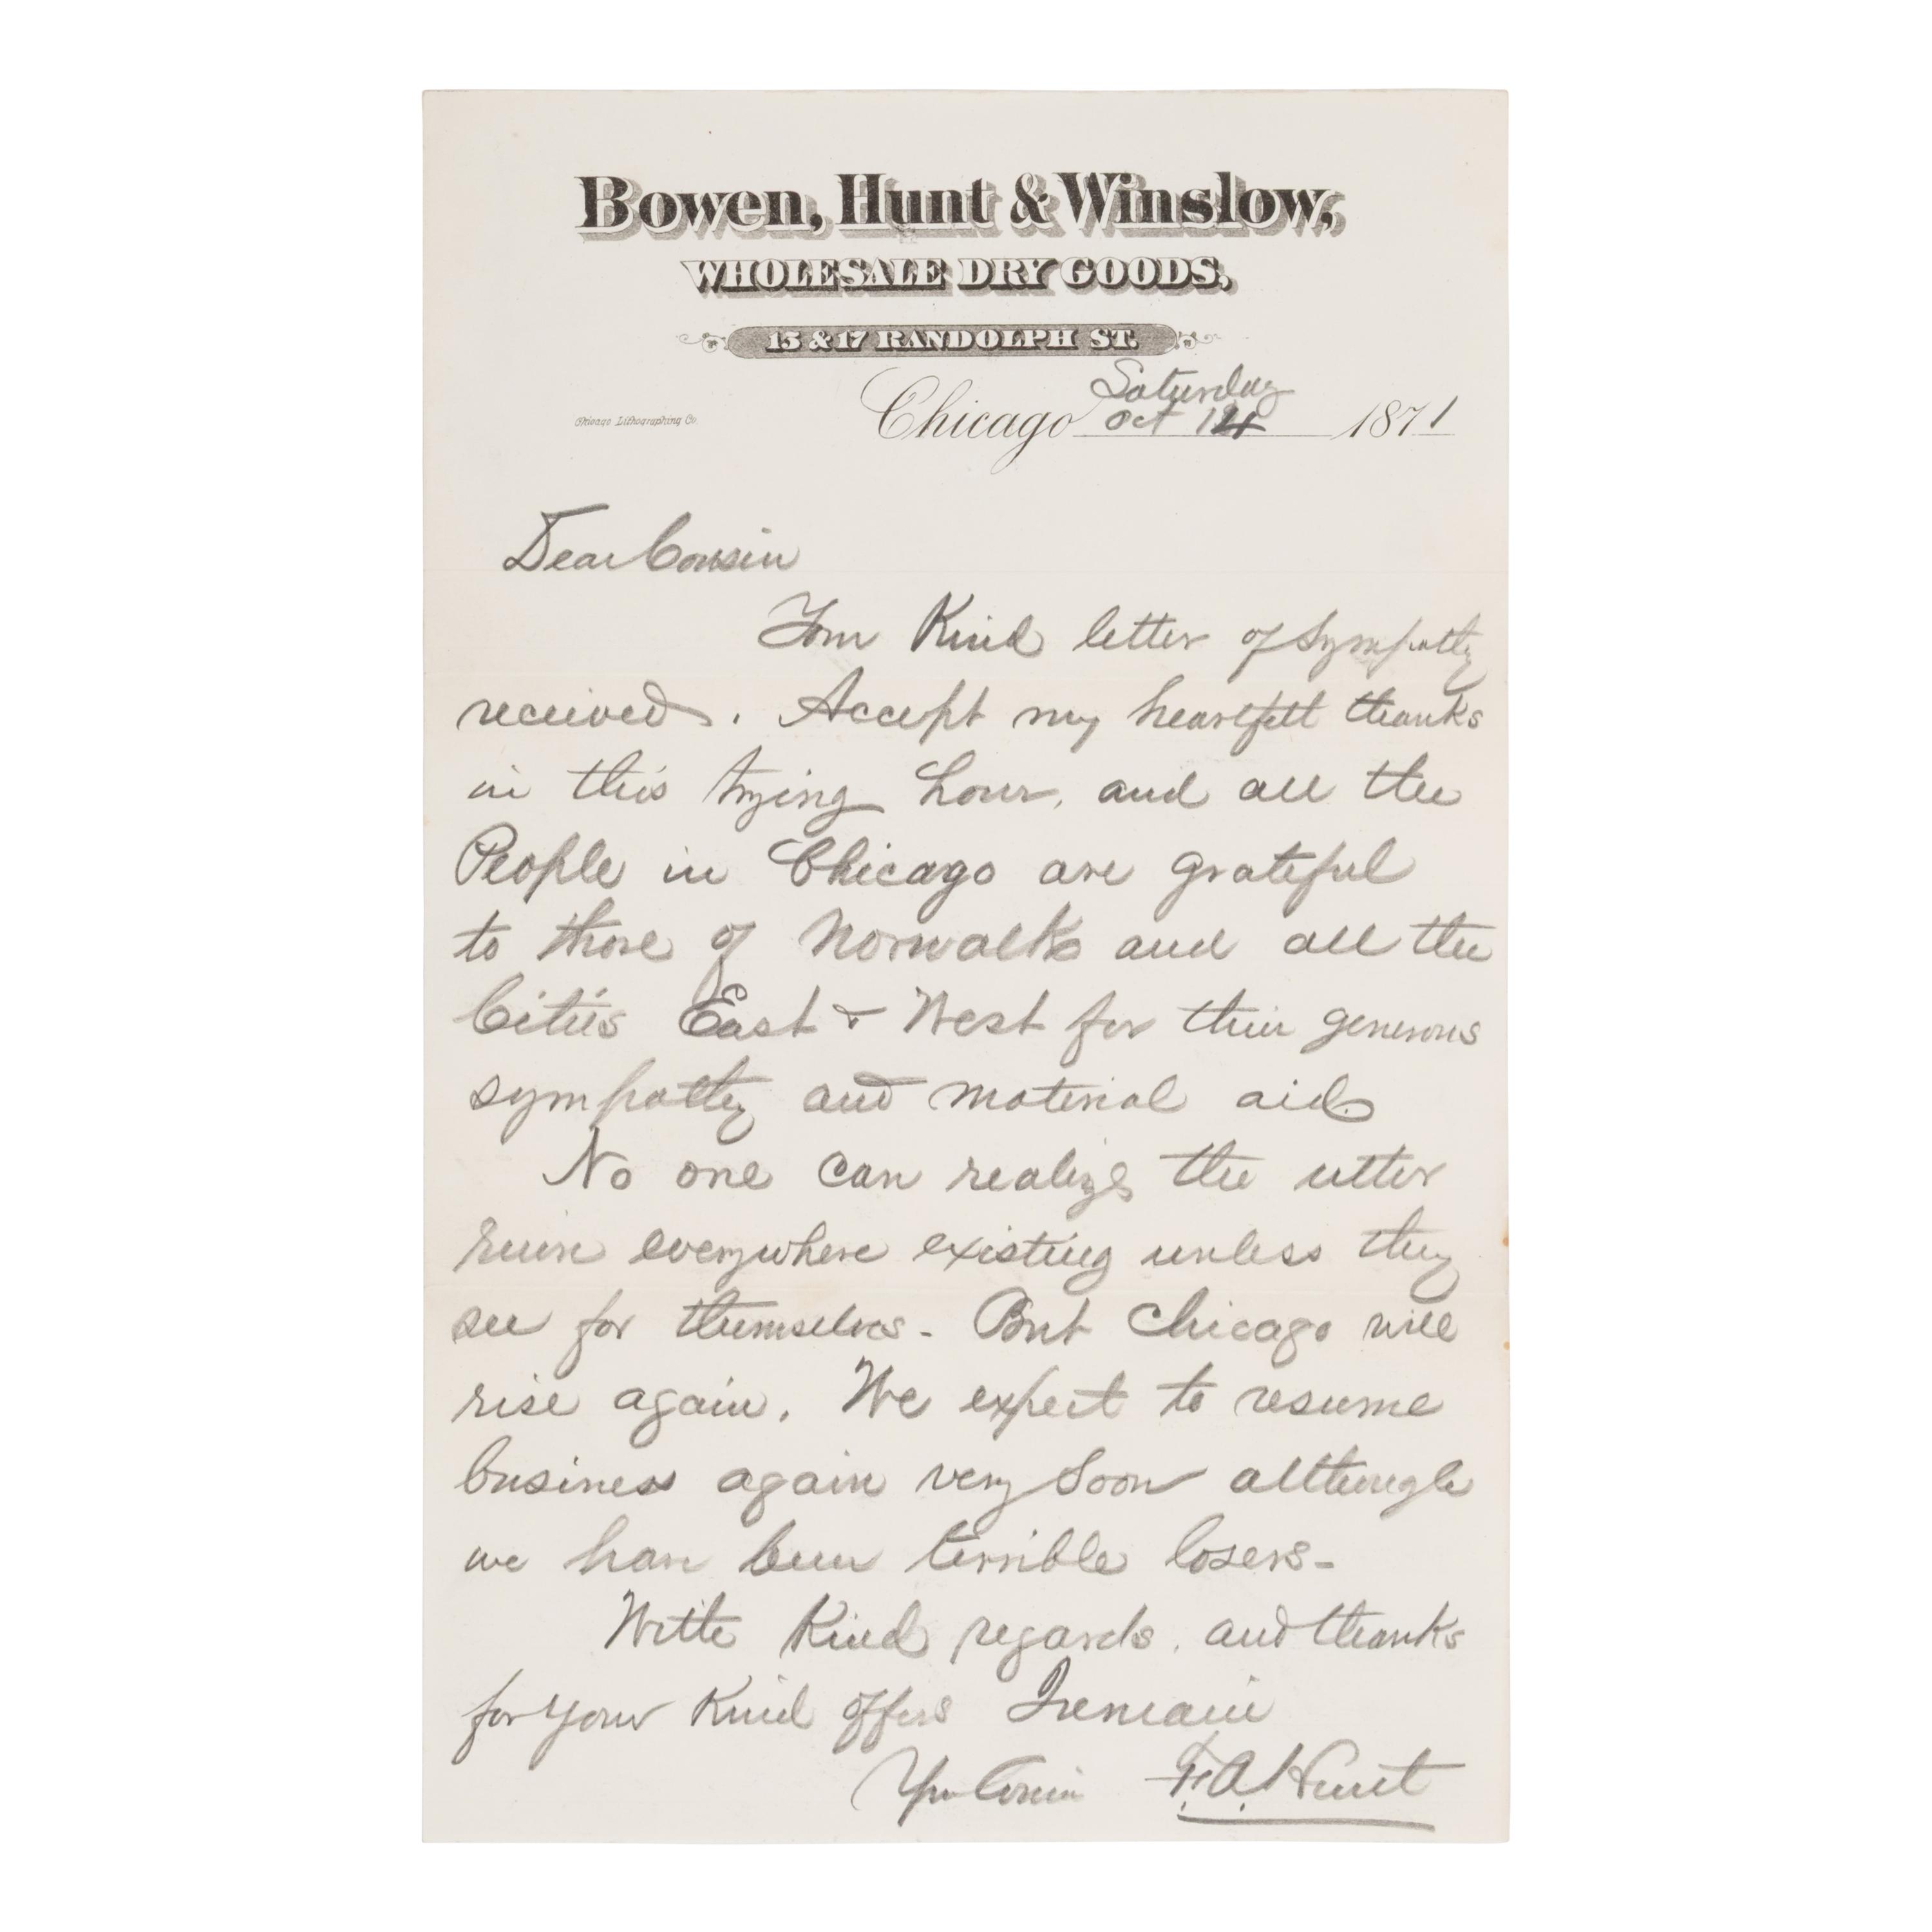 Bowen, Hunt & Winslow,
WHOLESALE DRY GOODS,
15 & 17 RANDOLPH ST.
Saturday
Chicago Oct 14 1871
Chicago Lithographing Co
Dear Cousin
Your Kind letter of Sympathy
received. Accept my heartfelt thanks
in this trying hour, and all the
People in Chicago are grateful
to those of Norwalk and all the
Cities East & West for their generous
sympathy and material aid.
No one can realize the utter
ruin everywhere existing unless they
see for themselves - But Chicago will
rise again. We expect to resume
business again very Soon although
we have been terrible losers -
With Kind regards, and thanks
for your Kind offers I remain
Yr Cousin F. A. Hunt